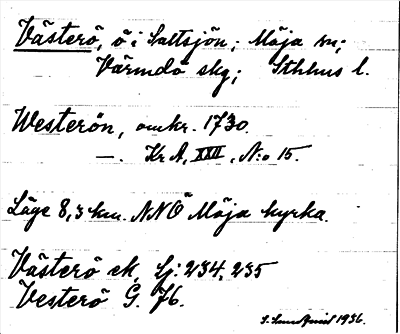 Västerö, ö i Saltsjön; Möja sn;
Värmdö skg; Sthlms l.
Westerön, omkr. 1730.
—. Kr A, XXII, N:o 15.
Läge 8,3 km. NNÖ Möja kyrka.
Västerö ek, Sj: 234, 235
Vesterö G. 76.
1936.